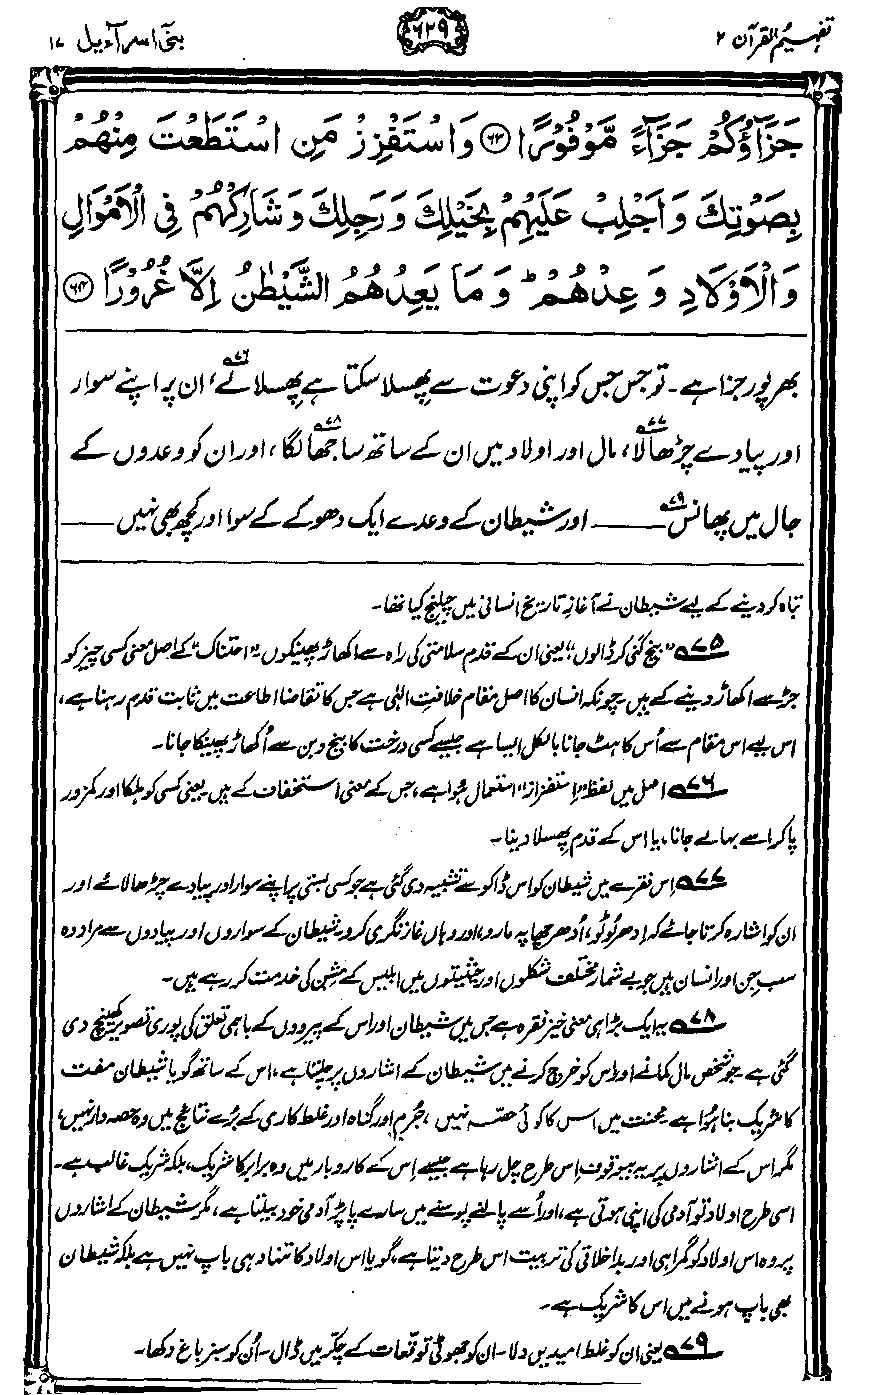 تفہیم القرآن ۲
۶۲۹
بنی اسرآءیل ۱۷
جَزَآؤُكُمْ جَزَآءً مَّوْفُوْرًا ﴿۶۳﴾ وَاسْتَفْزِزْ مَنِ اسْتَطَعْتَ مِنْهُمْ
بِصَوْتِكَ وَاَجْلِبْ عَلَيْهِمْ بِخَيْلِكَ وَرَجِلِكَ وَشَارِكْهُمْ فِى الْاَمْوَالِ
وَالْاَوْلَادِ وَعِدْهُمْ ؕ وَمَا يَعِدُهُمُ الشَّيْطٰنُ اِلَّا غُرُوْرًا ﴿۶۴﴾
بھرپور جزا ہے۔ تو جس جس کو اپنی دعوت سے پھسلا سکتا ہے پھسلا لے،۷۶ ان پر اپنے سوار
اور پیادے چڑھا لا،۷۷ مال اور اولاد میں ان کے ساتھ ساجھا لگا،۷۸ اور ان کو وعدوں کے
جال میں پھانس۷۹ ـــــــ اور شیطان کے وعدے ایک دھوکے کے سوا اور کچھ بھی نہیں ـــــــ
تباہ کر دینے کے لیے شیطان نے آغازِ تاریخِ انسانی میں چیلنج کیا تھا۔
۷۵ "بیخ کنی کر ڈالوں"، یعنی ان کے قدم سلامتی کی راہ سے اکھاڑ پھینکوں۔ "احتناک" کے اصل معنی کسی چیز کو
جڑ سے اکھاڑ دینے کے ہیں۔ چونکہ انسان کا اصل مقام خلافتِ الٰہی ہے جس کا تقاضا اطاعت میں ثابت قدم رہنا ہے،
اس لیے اس مقام سے اُس کا ہٹ جانا بالکل ایسا ہے جیسے کسی درخت کا بیخ و بن سے اُکھاڑ پھینکا جانا۔
۷۶ اصل میں لفظ "اِستفزاز" استعمال ہوا ہے، جس کے معنی استخفاف کے ہیں یعنی کسی کو ہلکا اور کمزور
پا کر اسے بہا لے جانا، یا اس کے قدم پھسلا دینا۔
۷۷ اس فقرے میں شیطان کو اس ڈاکو سے تشبیہ دی گئی ہے جو کسی بستی پر اپنے سوار اور پیادے چڑھا لائے اور
ان کو اشارہ کرتا جائے کہ اِدھر لُوٹو، اُدھر چھاپہ مارو، اور وہاں غارتگری کرو۔ شیطان کے سواروں اور پیادوں سے مراد وہ
سب جن اور انسان ہیں جو بے شمار مختلف شکلوں اور حیثیتوں میں ابلیس کے مشن کی خدمت کر رہے ہیں۔
۷۸ یہ ایک بڑا ہی معنی خیز فقرہ ہے جس میں شیطان اور اس کے پیرووں کے باہمی تعلق کی پوری تصویر کھینچ دی
گئی ہے۔ جو شخص مال کمانے اور اس کو خرچ کرنے میں شیطان کے اشاروں پر چلتا ہے، اس کے ساتھ گویا شیطان مفت
کا شریک بنا ہُوا ہے۔ محنت میں اس کا کوئی حصّہ نہیں، جُرم اور گناہ اور غلط کاری کے بُرے نتائج میں وہ حصہ دار نہیں،
مگر اس کے اشاروں پر یہ بیوقوف اس طرح چل رہا ہے جیسے اِس کے کاروبار میں وہ برابر کا شریک، بلکہ شریکِ غالب ہے۔
اسی طرح اولاد تو آدمی کی اپنی ہوتی ہے، اور اُسے پالنے پوسنے میں سارے پاپڑ آدمی خود بیلتا ہے، مگر شیطان کے اشاروں
پر وہ اس اولاد کو گمراہی اور بداخلاقی کی تربیت اس طرح دیتا ہے، گویا اس اولاد کا تنہا وہی باپ نہیں ہے بلکہ شیطان
بھی باپ ہونے میں اس کا شریک ہے۔
۷۹ یعنی ان کو غلط امیدیں دلا۔ ان کو جھوٹی توقعات کے چکّر میں ڈال۔ اُن کو سبز باغ دکھا۔